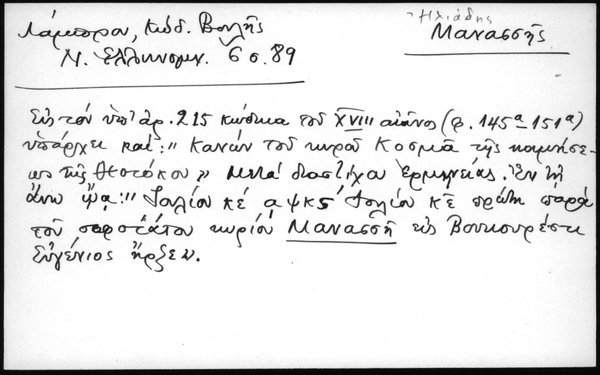 Λάμπρου, Κώδ. Βουλῆς
Ν. Ἑλληνομν. 6 σ. 89
Ἠλιάδης
Μανασσῆς
Εἰς τόν ὑπ' ἀρ. 215 κώδικα τοῦ XVIII αἰῶνος (φ. 145α-151α)
ὑπάρχει καί: "Κανών τοῦ κυροῦ Κοσμᾶ τῆς κοιμήσε-
ως τῆς Θεοτόκου" μετά διαστίχου ἑρμηνείας. Ἐν τῇ
ἄνω ᾤᾳ: "Ἰουλίου κέ αψκς Ἰουλίου κε πρώτη παρά
τοῦ σοφωτάτου κυρίου Μανασσῆ εἰς Βουκουρέστι
Εὐγένιος ἤρξεν.